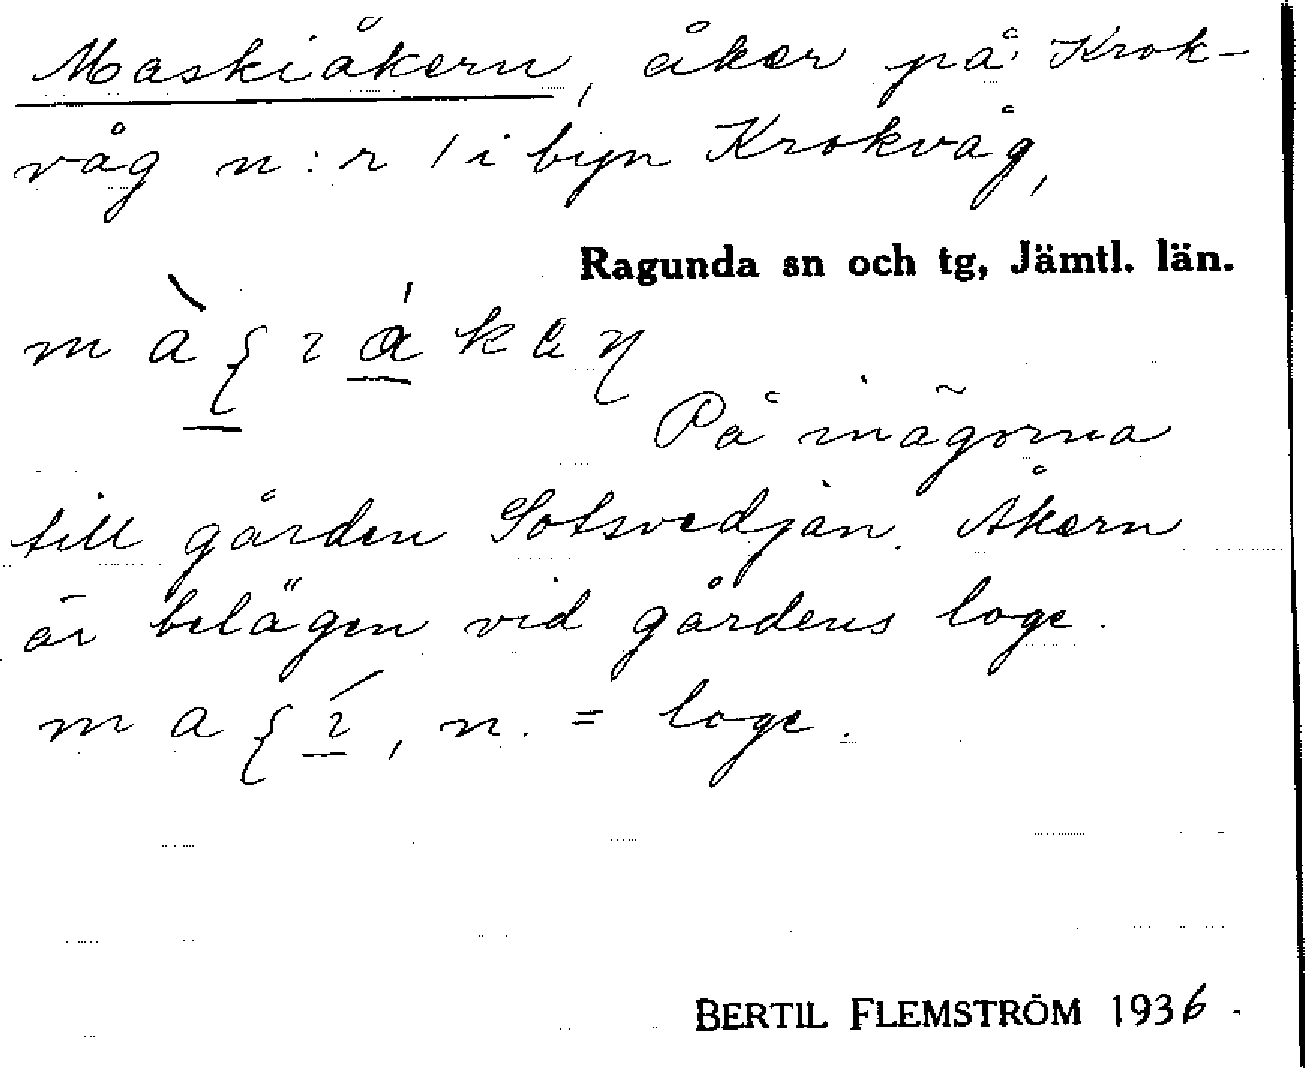 Maskiåkern, åker på Krok-
våg n:r 1 i byn Krokvåg,
Ragunda sn och tg, Jämtl. län.
På inägorna
till gården Sotsvedjan. Åkern
är belägen vid gårdens loge.
, n. = loge.
BERTIL FLEMSTRÖM 1936.